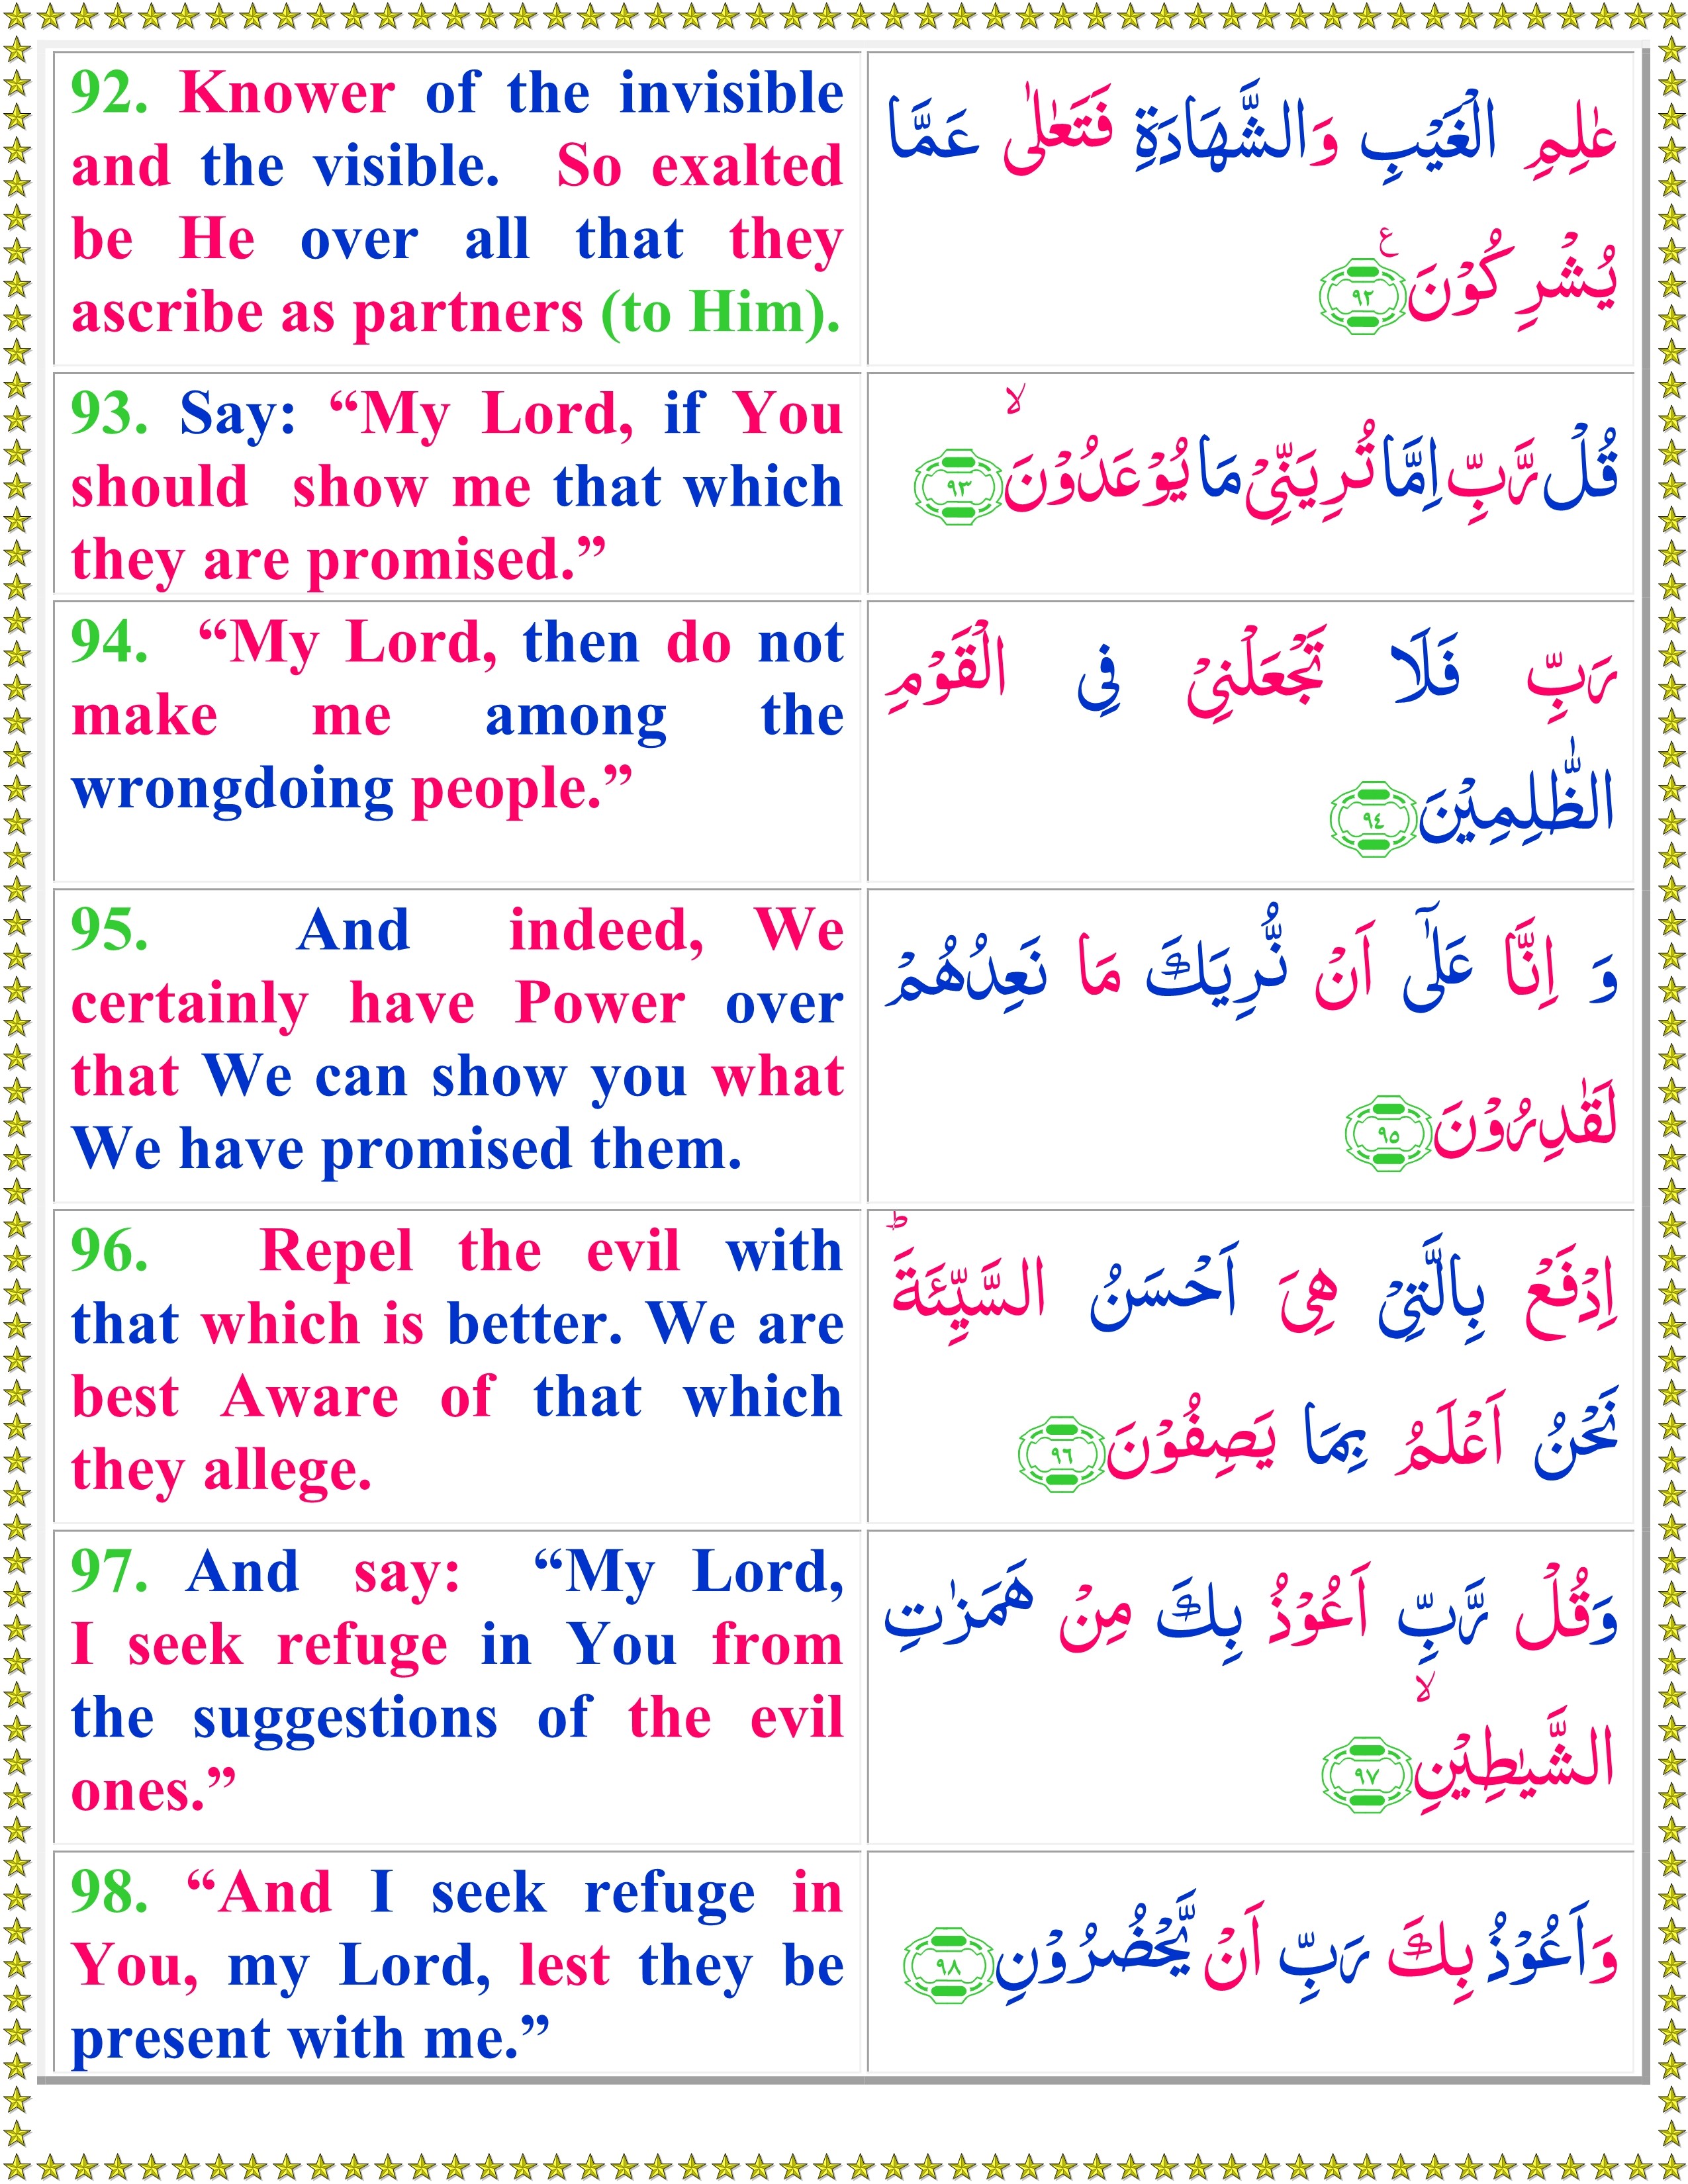 92. Knower of the invisible
and the visible. So exalted
be He over all that they
ascribe as partners (to Him).
عٰلِمِ الْغَيْبِ وَالشَّهَادَةِ فَتَعٰلٰى عَمَّا
يُشْرِكُوْنَ ۧ ﴿٩٢﴾
93. Say: “My Lord, if You
should show me that which
they are promised.”
قُلْ رَّبِّ اِمَّا تُرِيَنِّىْ مَا يُوْعَدُوْنَ ۙ ﴿٩٣﴾
94. “My Lord, then do not
make me among the
wrongdoing people.”
رَبِّ فَلَا تَجْعَلْنِىْ فِى الْقَوْمِ
الظّٰلِمِيْنَ ﴿٩٤﴾
95. And indeed, We
certainly have Power over
that We can show you what
We have promised them.
وَ اِنَّا عَلٰٓى اَنْ نُّرِيَكَ مَا نَعِدُهُمْ
لَقٰدِرُوْنَ ﴿٩٥﴾
96. Repel the evil with
that which is better. We are
best Aware of that which
they allege.
اِدْفَعْ بِالَّتِىْ هِىَ اَحْسَنُ السَّيِّئَةَ ؕ
نَحْنُ اَعْلَمُ بِمَا يَصِفُوْنَ ﴿٩٦﴾
97. And say: “My Lord,
I seek refuge in You from
the suggestions of the evil
ones.”
وَقُلْ رَّبِّ اَعُوْذُ بِكَ مِنْ هَمَزٰتِ
الشَّيٰطِيْنِ ۙ ﴿٩٧﴾
98. “And I seek refuge in
You, my Lord, lest they be
present with me.”
وَاَعُوْذُ بِكَ رَبِّ اَنْ يَّحْضُرُوْنِ ﴿٩٨﴾